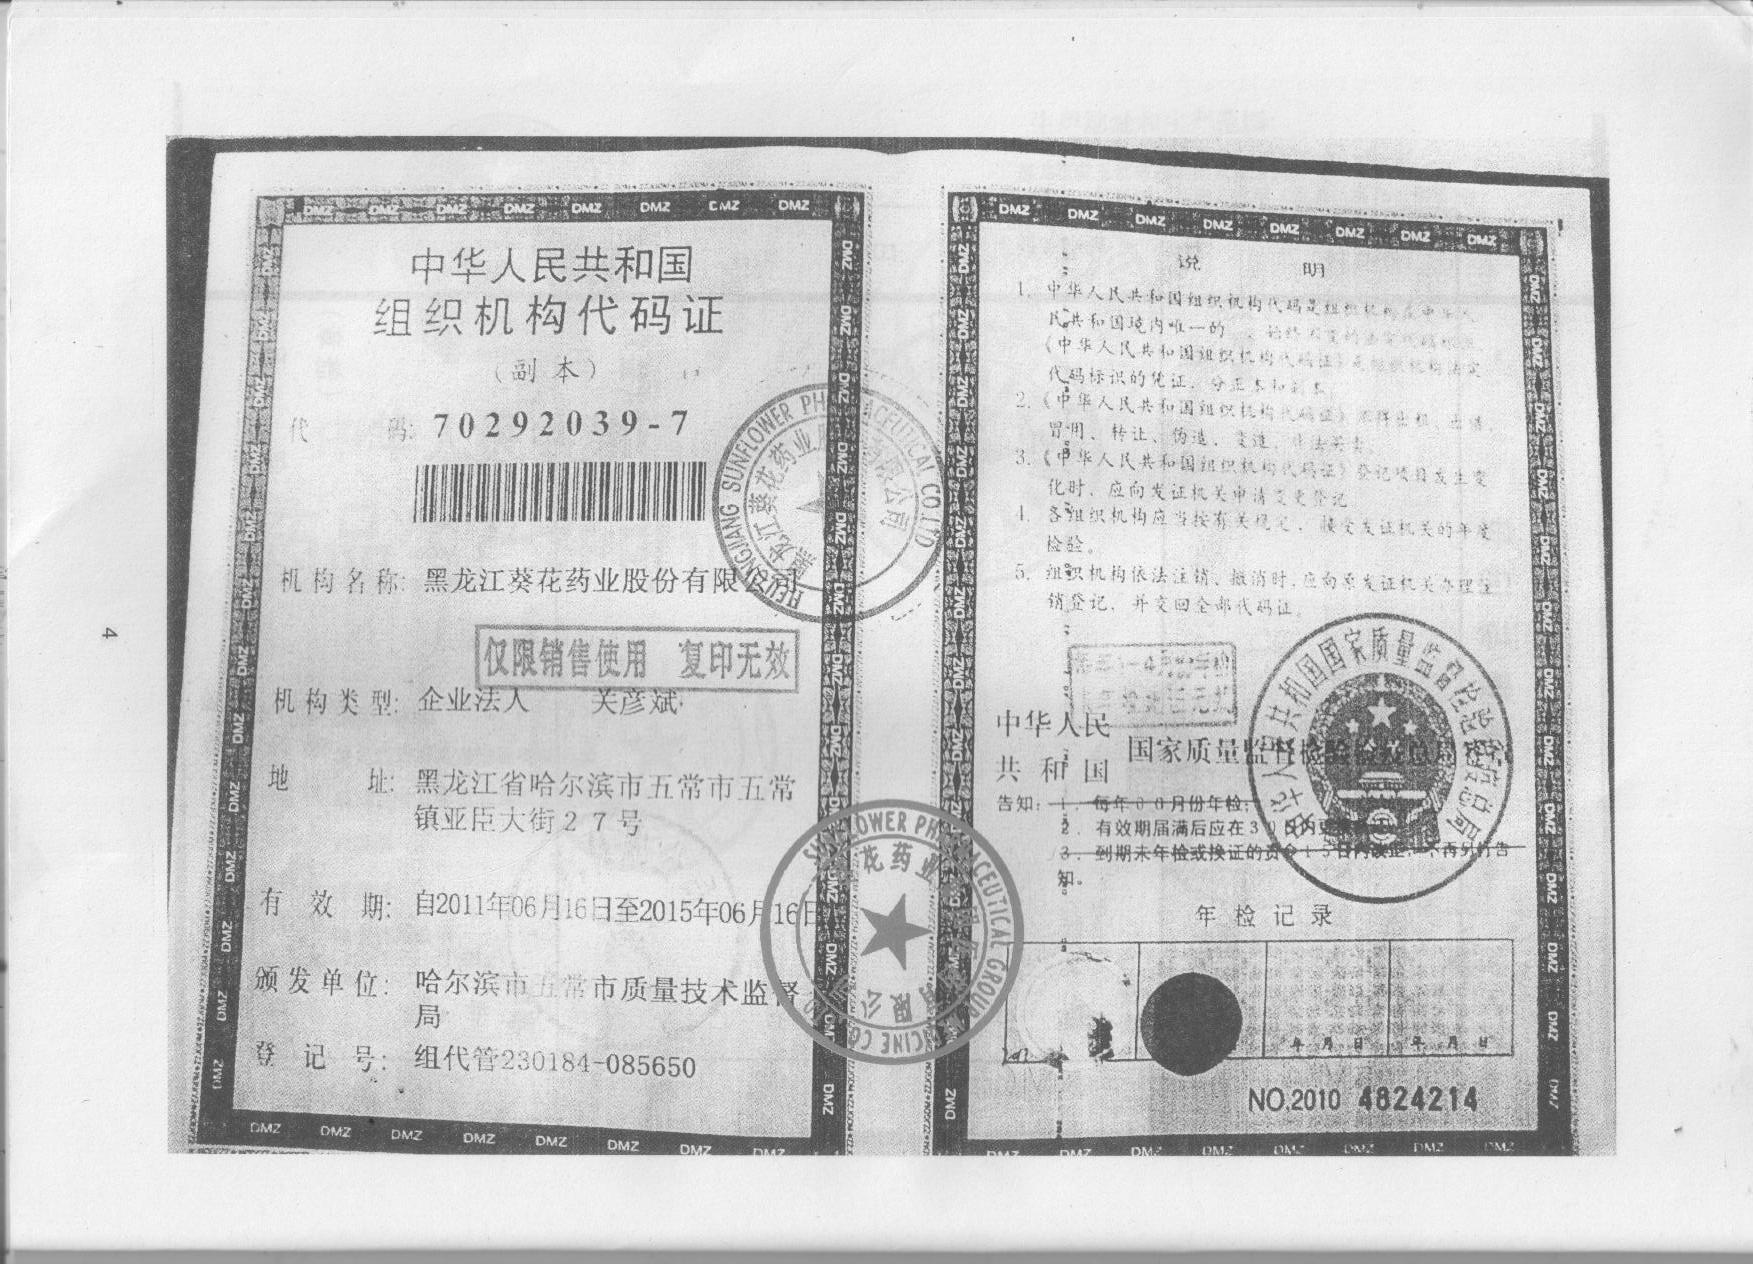 中华人民共和国
组织机构代码证
（副本）
代 码: 70292039-7
机构名称: 黑龙江葵花药业股份有限公司
仅限销售使用 复印无效
机构类型: 企业法人 关彦斌
地 址: 黑龙江省哈尔滨市五常市五常
镇亚臣大街27号
有 效 期: 自2011年06月16日至2015年06月16日
颁发单位: 哈尔滨市五常市质量技术监督
局
登 记 号: 组代管230184-085650
说 明
1. 中华人民共和国组织机构代码是组织机构在中华人
民共和国境内唯一的、始终不变的法定代码标识，
《中华人民共和国组织机构代码证》是组织机构法定
代码标识的凭证，分正本和副本。
2.《中华人民共和国组织机构代码证》不得出租、出借、
冒用、转让、伪造、变造、非法买卖。
3.《中华人民共和国组织机构代码证》登记项目发生变
化时，应向发证机关申请变更登记
4. 各组织机构应当按有关规定，接受发证机关的年度
检验。
5. 组织机构依法注销、撤消时，应向原发证机关办理注
销登记，并交回全部代码证。
中华人民
共和国
国家质量监督检验检疫总局
告知: 1．每年00月份年检；
2．有效期届满后应在30日内更
3．到期未年检或换证的责令15日内改正，不再另行告
知。
年检记录
年 月 日 年 月 日
NO.2010 4824214
4